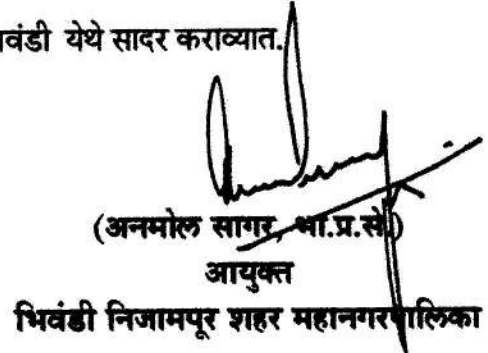 वंडी येथे सादर कराव्यात.
(अनमोल सागर, भा.प्र.से.)
आयुक्त
भिवंडी निजामपूर शहर महानगरपालिका